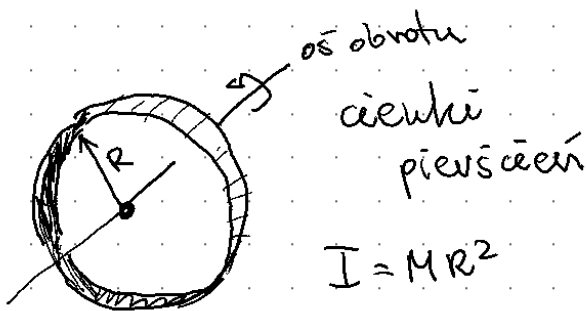 oś obrotu
cienki
pierścień
R
I = MR²